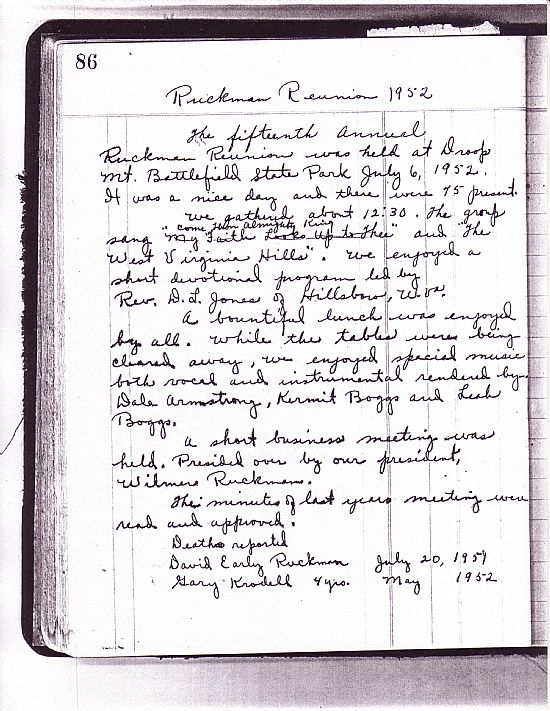 86
Ruckman Reunion 1952
The fifteenth Annual
Ruckman Reunion was held at Droop
Mt. Battlefield State Park July 6, 1952.
It was a nice day and there were 75 present.
We gathered about 12:30. The group
"Come Thou Almighty King
sang "My Faith Looks Up to Thee" and "The
West Virginia Hills". We enjoyed a
short devotional program led by
Rev. D. L. Jones of Hillsboro, W. Va.
A bountiful lunch was enjoyed
by all. While the tables were being
cleared away, we enjoyed special music
both vocal and instrumental rendered by
Dale Armstrong, Kermit Boggs and Leah
Boggs.
A short business meeting was
held. Presided over by our president,
Wilmer Ruckman.
The minutes of last years meeting were
read and approved.
Deaths reported
David Early Ruckman July 20, 1951
Gary Krodell 4 yrs. May 1952